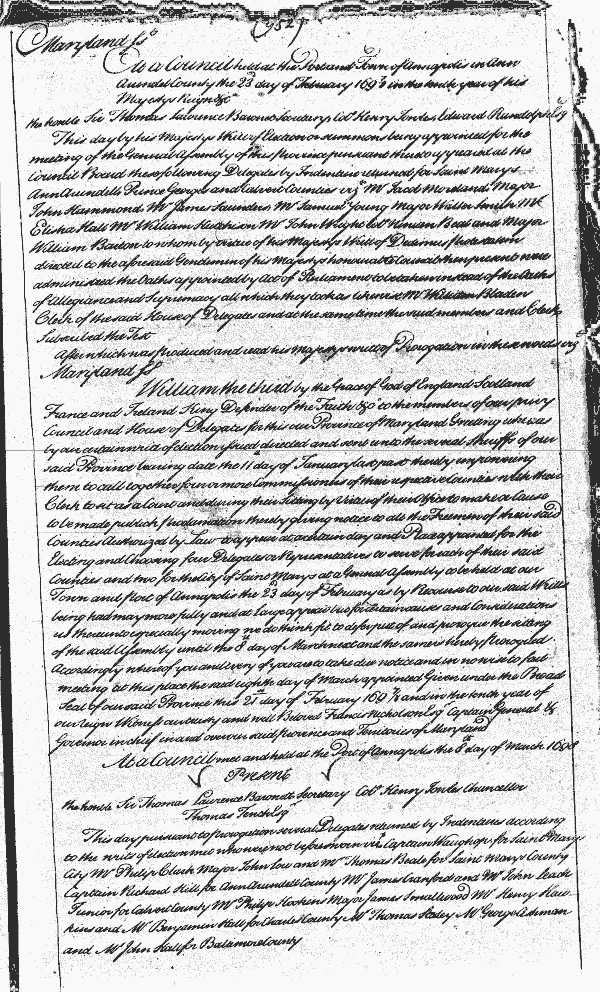 (952)
Maryland ss
At a Council held at the Port and Town of Annapolis in Ann
Arundel County the 23 day of February 1697/8 in the tenth year of his
Majestys Reign &c
the honble Sir Thomas Laurence Baronet Secretary, Col Henry Jowles Edward Randolph Esq
This day by his Majestys Writs of Election or summons being appointed for the
meeting of the General Assembly of this Province pursuant thereto appeared at the
Council Board these following Delegates by Indenture returned for Saint Marys
Ann Arundell Prince Georges and Calvert Counties viz Mr Jacob Moreland Major
John Hammond Mr James Saunders Mr Samuel Young Major Walter Smith Mr
Elisha Hall Mr William Hutchison Mr John Wight Ninian Beal and Major
William Barton to whom by virtue of his Majestys Writt of Dedimus Potestatem
directed to the aforesaid Gentlemen of his Majestys honourable Council then present were
administred the Oaths appointed by Act of Parliament to be taken instead of the Oaths
of Allegiance and Supremacy all which they took as likewise Mr William Bladen
Clerk of the said House of Delegates and at the same time the said members and Clerk
Subscribed the Test
After which was produced and read his Majestys writt of Prorogation in these words viz
Maryland ss
William the third by the Grace of God of England Scotland
France and Ireland King Defender of the Faith &c to the members of our privy
Council and House of Delegates for this our Province of Maryland Greeting whereas
by our certain writs of election issued directed and sent unto the several Sheriffs of our
said Province bearing date the 11 day of January last past thereby impowering
them to call together four or more Commissioners of their respective Counties with their
Clerk to sit as a Court and during their sitting by Virtue of their Office to make or cause
to be made publick proclamation thereby giving notice to all the Freemen of their said
Counties Authorized by Law to appear at a certain day and Place appointed for the
Electing and Choosing four Delegates or Representatives to serve for each of their said
Counties and two for the City of Saint Marys at a General Assembly to be held at our
Town and Port of Annapolis the 23 day of February as by Recourse to our said Writts
being had may more fully and at Large appear but for certain causes and Considerations
us thereunto specially moving we do think fit to defer put of and prorogue the sitting
of the said Assembly until the 8 day of March next and the same is hereby Prorogued
Accordingly whereof you and every of you are to take due notice and in no wise to fail
meeting at this place the said eighth day of March appointed Given under the Broad
Seal of our said Province this 21 day of February 1697/8 and in the tenth year of
our reign Witness our trusty and well Beloved Francis Nicholson Esq Captain General &
Governor in chief in and over our said Province and Territories of Maryland
At a Council met and held at the Port of Annapolis the 8 day of March 1698
Present
the honble Sir Thomas Laurence Baronet Secretary Col Henry Jowles Chancellor
Thomas Tench Esq
This day pursuant to prorogation several Delegates returned by Indentures according
to the writs of election met who were not before sworn viz Captain Waughop for Saint Marys
City Mr Philip Clark Major John Low and Mr Thomas Beale for Saint Marys County
Captain Richard Hill for Ann Arundell County Mr James Cranford and Mr John Leach
Junior for Calvert County Mr Philip Hoskins Major James Smallwood Mr Henry Haw
kins and Mr Benjamin Hall for Charles County Mr Thomas Staley Mr George Ashman
and Mr John Hall for Baltimore County